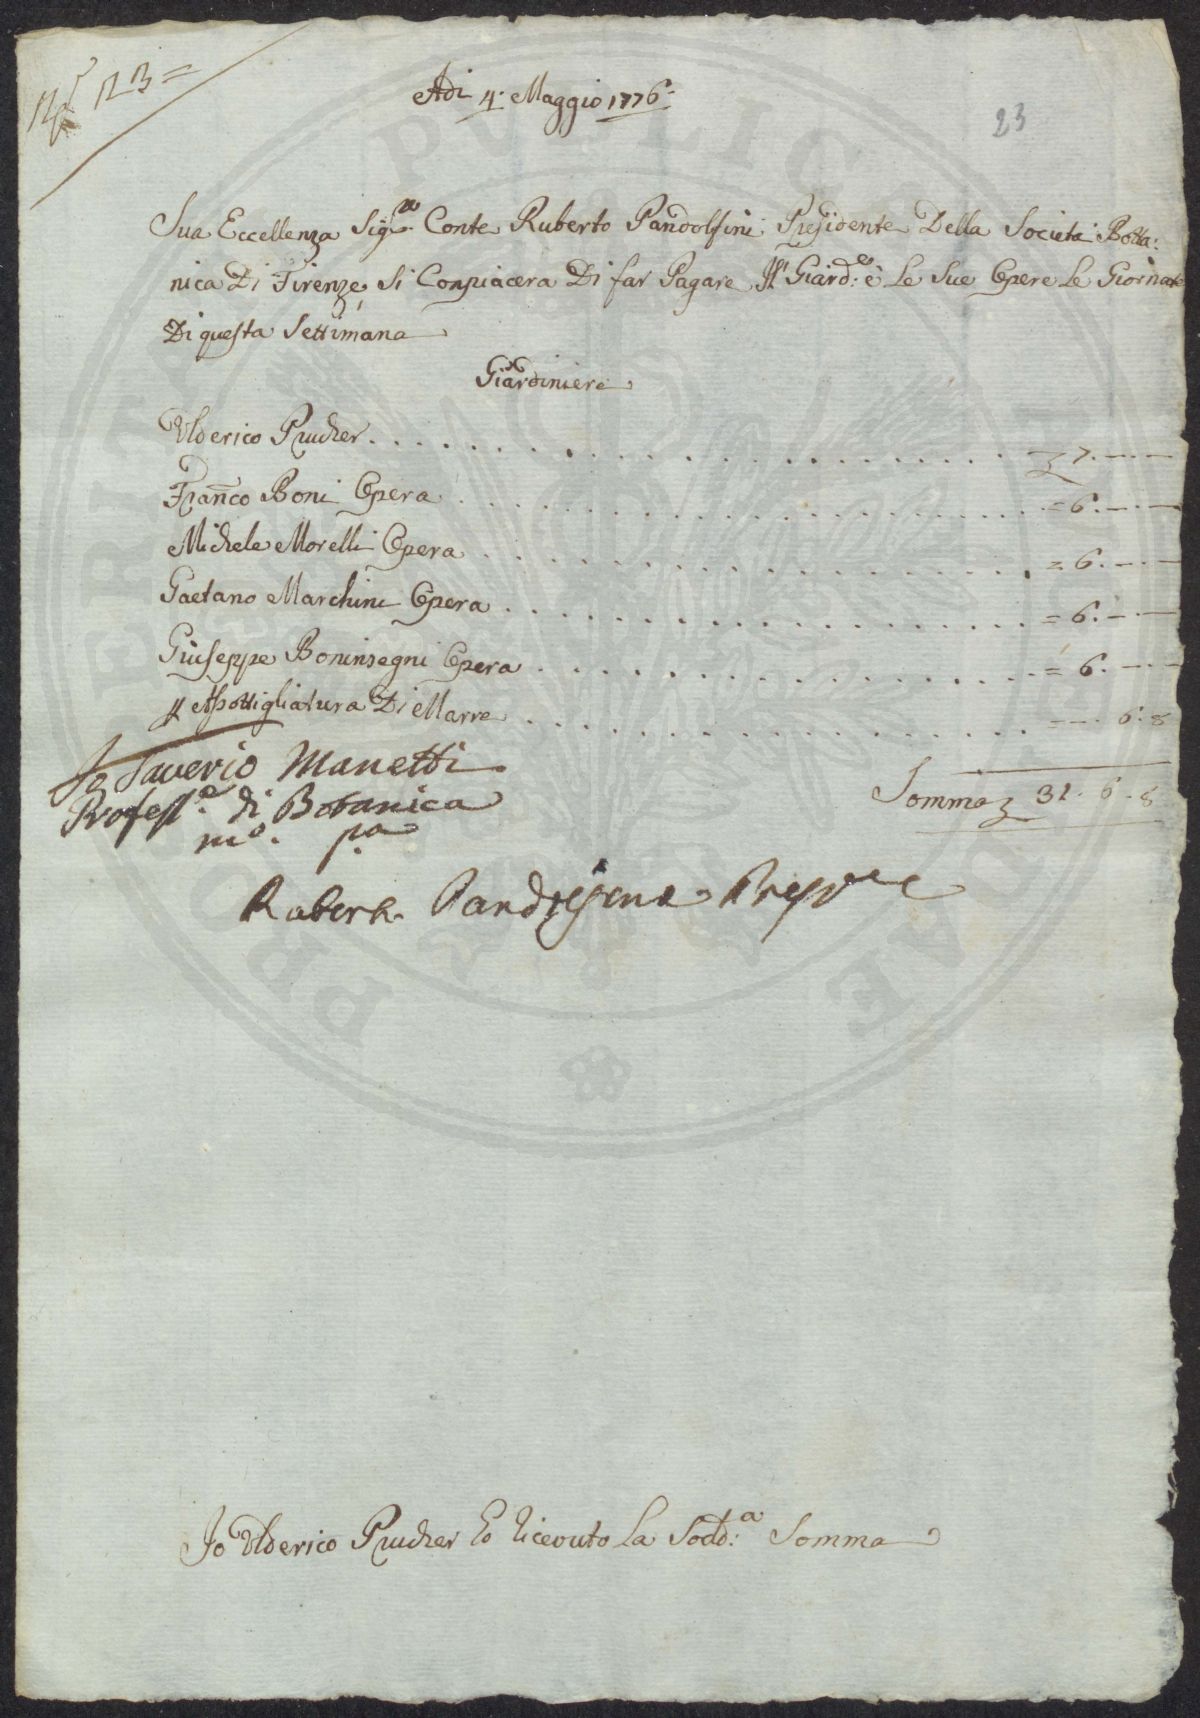 N.º 23 =
Adi 4. Maggio 1776.
23
Sua Eccellenza Sig.re Conte Ruberto Pandolfini Presidente Della Societa Bota:
nica Di Firenze, Si Conpiacera Di far Pagare Il Giard.e è Le Sue Opere Le Giornate
Di questa Settimana
Giardiniere
Ulderico Prucher . . . 7. — —
Franco Boni Opera . . . = 6. — —
Michele Morelli Opera . . . = 6. — —
Gaetano Marchini Opera . . . = 6. — —
Giuseppe Boninsegni Opera . . . = 6. — —
Asottigliatura Di Marre . . . = —. 6. 8
Somma 31. 6. 8
Io Saverio Manetti
Profess.e di Botanica
m.o p.a
Ruberto Pandolfini Presid.e
Io Ulderico Prucher Ho Riceuto La Sodd.a Somma
PUBLIC